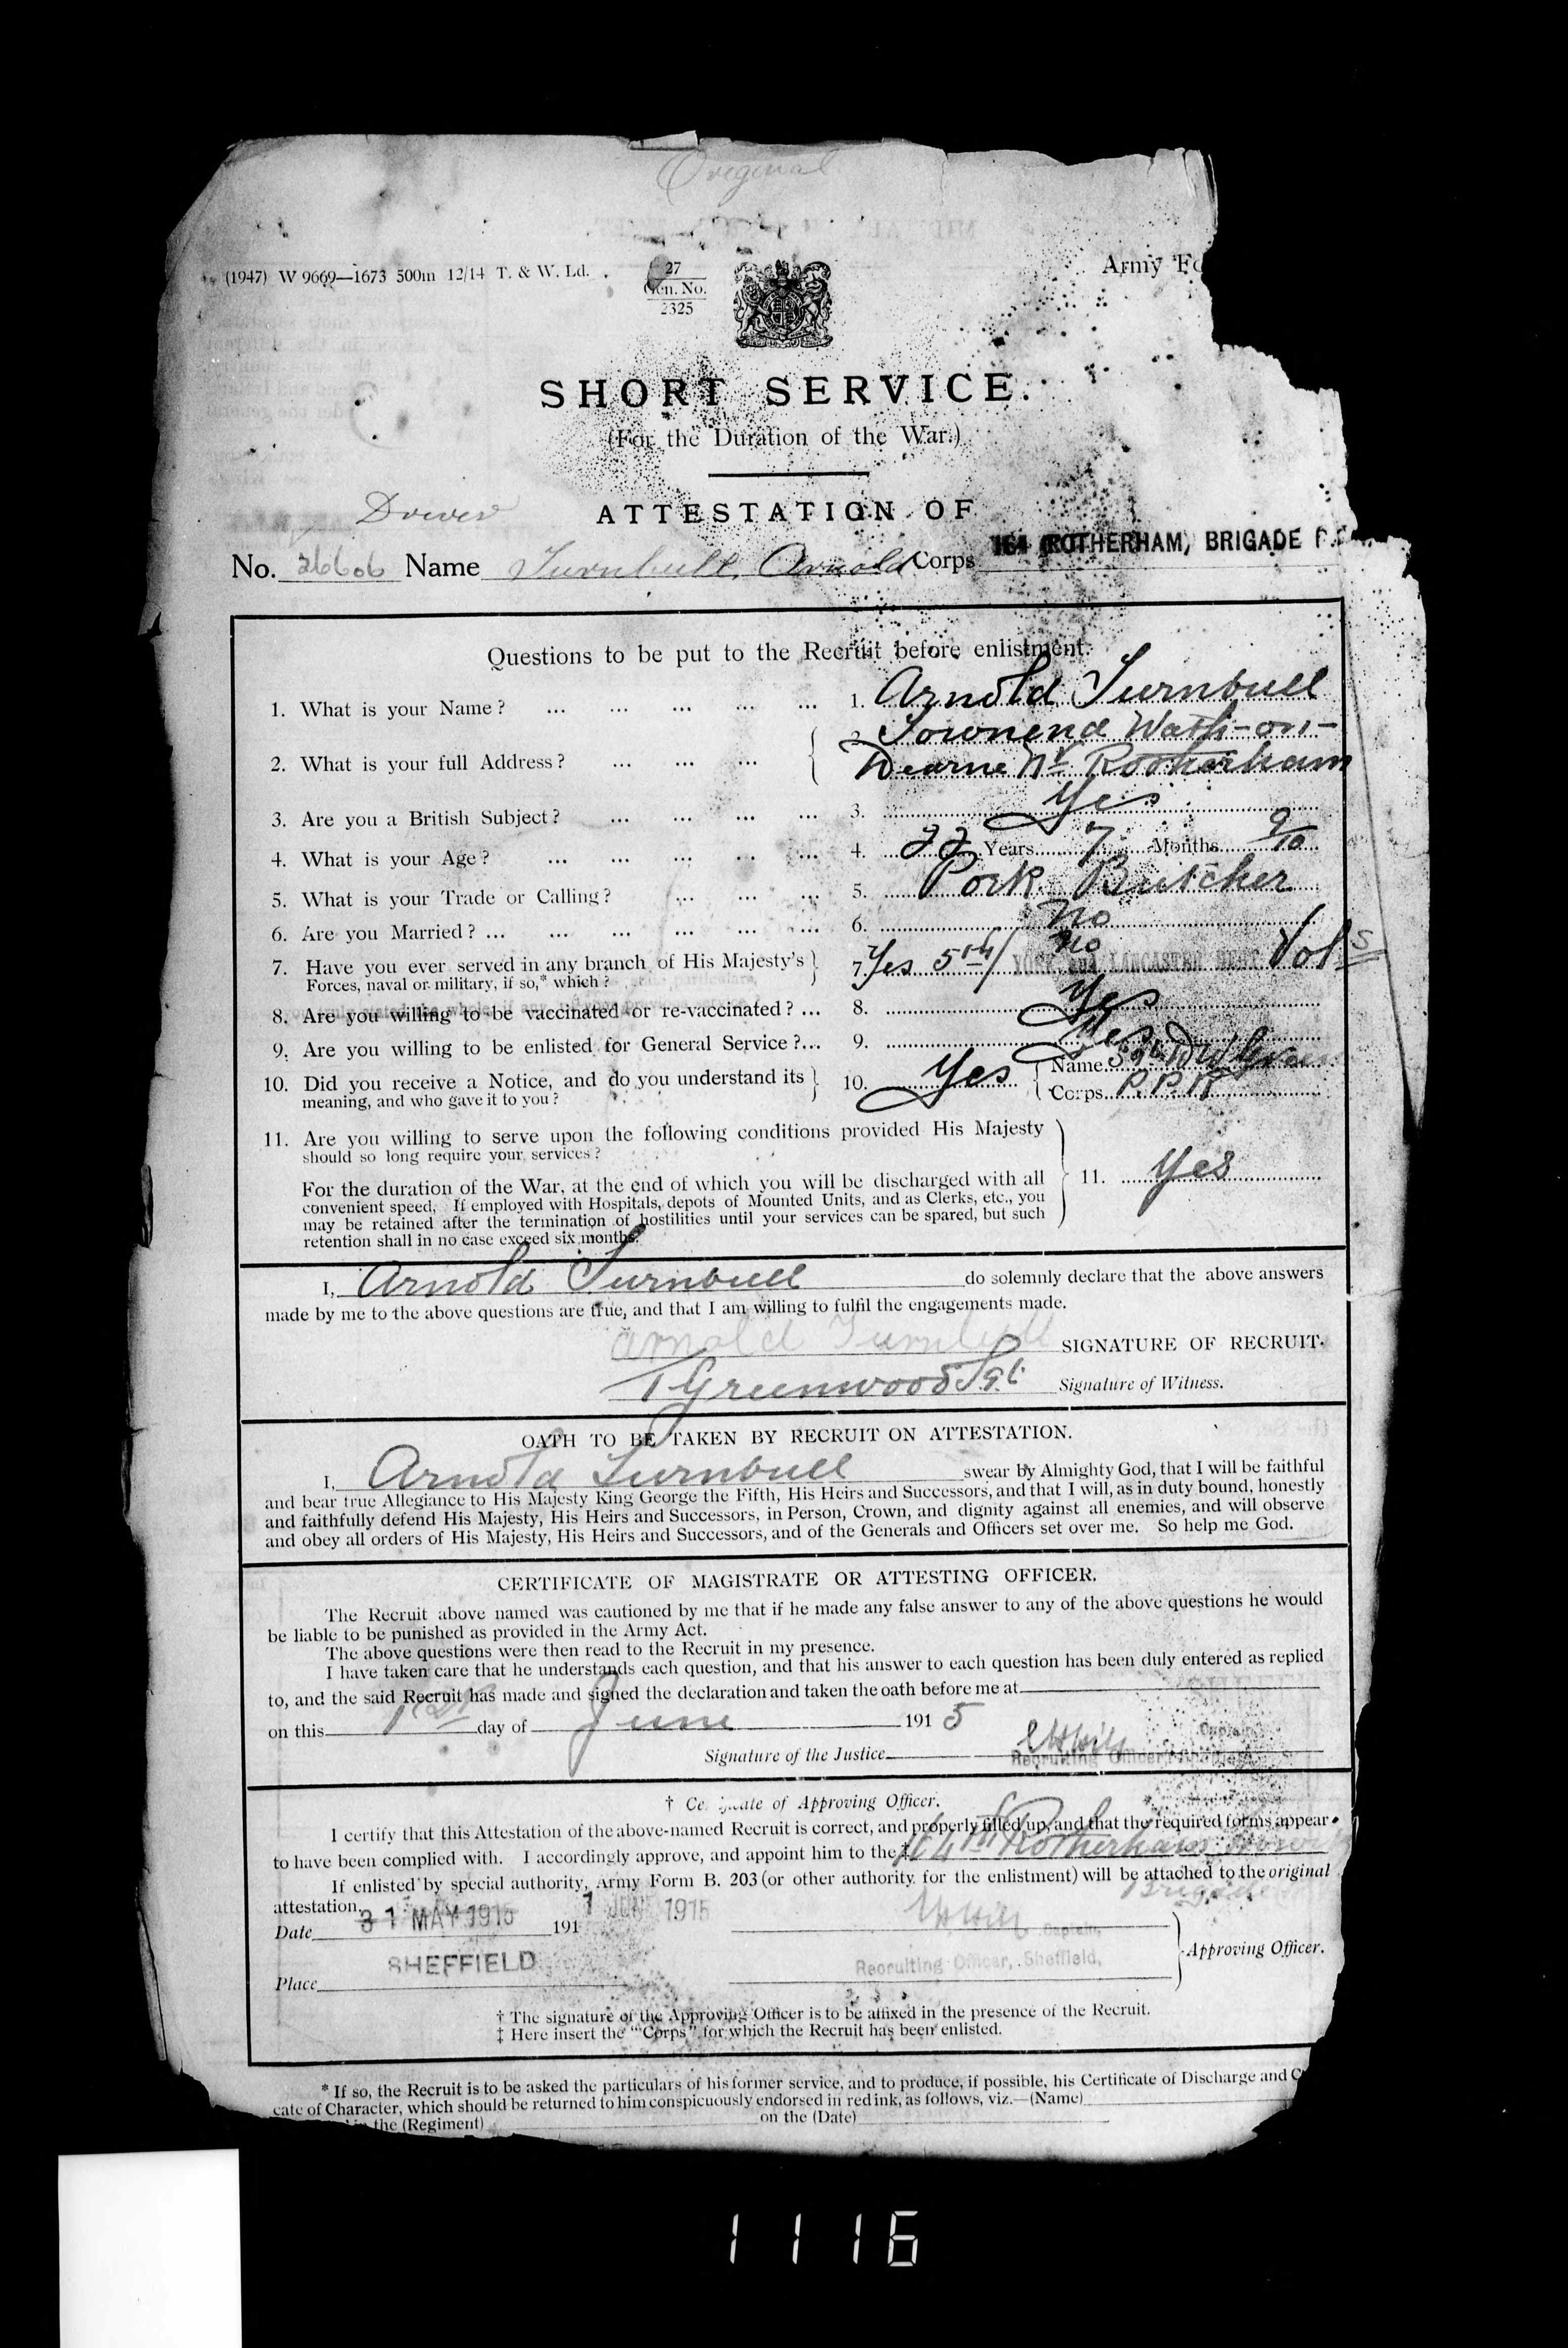 Original
(1947) W 9669—1673 500m 12/14 T. & W. Ld.
27
Gen. No.
2325
Army Fo
SHORT SERVICE.
(For the Duration of the War.)
Driver
ATTESTATION OF
No. 26606 Name Turnbull, Arnold Corps 164 (ROTHERHAM) BRIGADE R.
Questions to be put to the Recruit before enlistment.
1. What is your Name? ... ... ... ... ... 1. Arnold Turnbull
Townend Wath-on-
2. What is your full Address? ... ... ... Dearne Nr Rotherham
3. Are you a British Subject? ... ... ... ... 3. Yes
4. What is your Age? ... ... ... ... ... 4. 22 Years 7 Months
5. What is your Trade or Calling? ... ... ... 5. Pork Butcher
6. Are you Married? ... ... ... ... ... 6. No
No
7. Have you ever served in any branch of His Majesty's 7. Yes 5th YORK AND LANCASTER REGT Vols
Forces, naval or military, if so,* which?
8. Are you willing to be vaccinated or re-vaccinated? ... 8. Yes
9. Are you willing to be enlisted for General Service?... 9. Yes
10. Did you receive a Notice, and do you understand its 10. Yes Name Sgt
meaning, and who gave it to you? Corps
11. Are you willing to serve upon the following conditions provided His Majesty
should so long require your services?
For the duration of the War, at the end of which you will be discharged with all 11. Yes
convenient speed. If employed with Hospitals, depots of Mounted Units, and as Clerks, etc., you
may be retained after the termination of hostilities until your services can be spared, but such
retention shall in no case exceed six months.
I, Arnold Turnbull do solemnly declare that the above answers
made by me to the above questions are true, and that I am willing to fulfil the engagements made.
Arnold Turnbull SIGNATURE OF RECRUIT.
T Greenwood Sgt Signature of Witness.
OATH TO BE TAKEN BY RECRUIT ON ATTESTATION.
I, Arnold Turnbull swear by Almighty God, that I will be faithful
and bear true Allegiance to His Majesty King George the Fifth, His Heirs and Successors, and that I will, as in duty bound, honestly
and faithfully defend His Majesty, His Heirs and Successors, in Person, Crown, and dignity against all enemies, and will observe
and obey all orders of His Majesty, His Heirs and Successors, and of the Generals and Officers set over me. So help me God.
CERTIFICATE OF MAGISTRATE OR ATTESTING OFFICER.
The Recruit above named was cautioned by me that if he made any false answer to any of the above questions he would
be liable to be punished as provided in the Army Act.
The above questions were then read to the Recruit in my presence.
I have taken care that he understands each question, and that his answer to each question has been duly entered as replied
to, and the said Recruit has made and signed the declaration and taken the oath before me at
on this 1st day of June 1915
Captain
Signature of the Justice Recruiting Officer, Sheffield
† Certificate of Approving Officer.
I certify that this Attestation of the above-named Recruit is correct, and properly filled up, and that the required forms appear
to have been complied with. I accordingly approve, and appoint him to the ‡ 164th Rotherham Howitzer
Brigade
If enlisted by special authority, Army Form B. 203 (or other authority for the enlistment) will be attached to the original
attestation.
Date 31 MAY 1915 191 1 JUN 1915 Captain,
SHEFFIELD Recruiting Officer, Sheffield, Approving Officer.
Place
† The signature of the Approving Officer is to be affixed in the presence of the Recruit.
‡ Here insert the "Corps" for which the Recruit has been enlisted.
* If so, the Recruit is to be asked the particulars of his former service, and to produce, if possible, his Certificate of Discharge and C
cate of Character, which should be returned to him conspicuously endorsed in red ink, as follows, viz.—(Name)
in the (Regiment) on the (Date)
1116